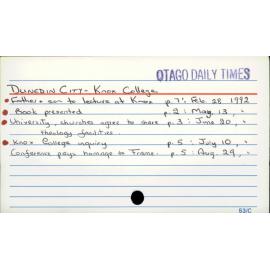 OTAGO DAILY TIMES
DUNEDIN CITY - Knox College
Father & son to lecture at Knox p 7: Feb. 28 1992
Book presented p. 2: May. 13, "
University, churches agree to share p. 3: June 20, "
theology facilities.
Knox College inquiry p. 5: July 10, "
Conference pays homage to Frame. p. 5: Aug. 29, "
53/C